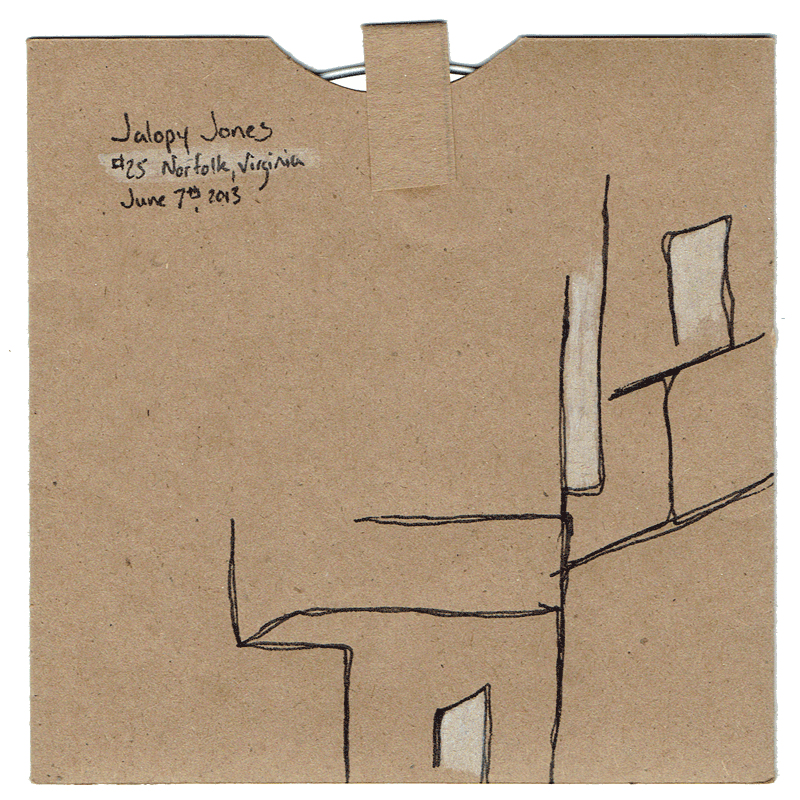 Jalopy Jones
#25 Norfolk, Virginia
June 7th, 2013